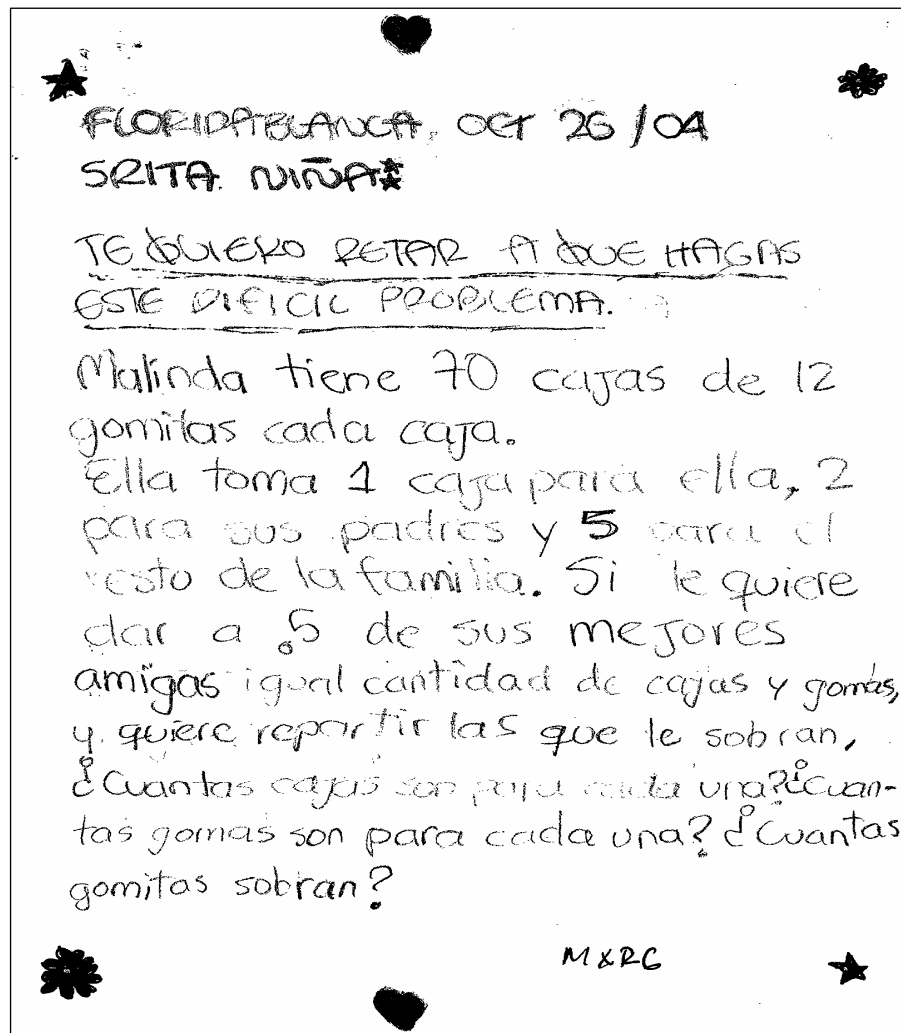 FLORIDABLANCA, OCT 26/04
SRITA. NIÑA
TE QUIERO RETAR A QUE HAGAS
ESTE DIFICIL PROBLEMA.
Malinda tiene 70 cajas de 12
gomitas cada caja.
Ella toma 1 caja para ella, 2
para sus padres y 5 para el
resto de la familia. Si le quiere
dar a 5 de sus mejores
amigas igual cantidad de cajas y gomas,
y quiere repartir las que le sobran,
¿Cuantas cajas son para cada una? ¿Cuan-
tas gomas son para cada una? ¿Cuantas
gomitas sobran?
MXRG